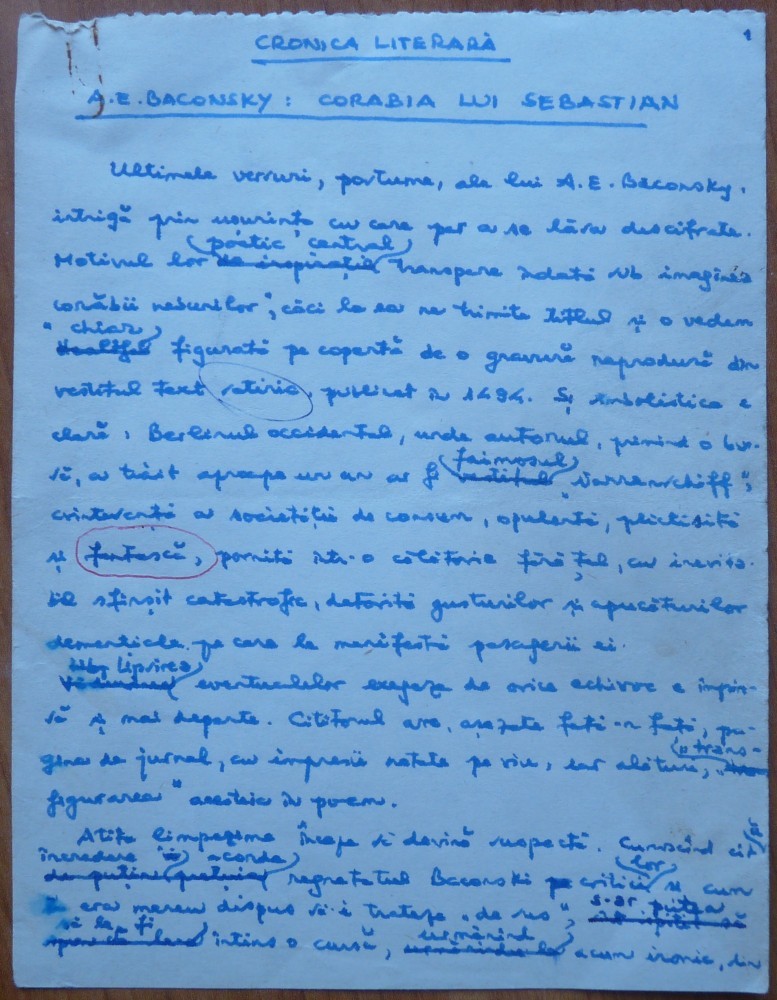 1
CRONICA LITERARĂ
A. E. BACONSKY: CORABIA LUI SEBASTIAN
Ultimele versuri, postume, ale lui A. E. Baconsky,
intrigă prin ușurința cu care par a se lăsa descifrate.
poetic central
Motivul lor de inspirație transpare îndată sub imaginea
corăbii nebunilor", căci la ea ne trimite titlul și o vedem
" chiar
figurată pe copertă de o gravură reprodusă din
vestitul text satiric, publicat în 1494. Și simbolistica e
clară: Berlinul occidental, unde autorul, primind o bur-
să, a trăit aproape un an ar fi vestitul „Narrenschiff",
faimosul
a societății de consum, opulentă, plictisită
și fantască, pornită într-o călătorie fără țel, cu inevita-
bil sfîrșit catastrofic, datorită gusturilor și apucăturilor
demențiale pe care le manifestă pasagerii ei.
lipsirea
eventualelor exegeze de orice echivoc e împin-
să și mai departe. Cititorul are, așezate față-n față, pa-
gina de jurnal, cu impresii notate pe viu, iar alături,
„trans-
figurarea" acesteia în poem.
Atîta limpezime începe să devină suspectă. Cunoscînd cît
ă
încredere acorda lor
regretatul Baconski criticii și cum
era mereu dispus să-i trateze „de sus", s-ar putea
să le fi întins o cursă, urmărind acum ironic, din